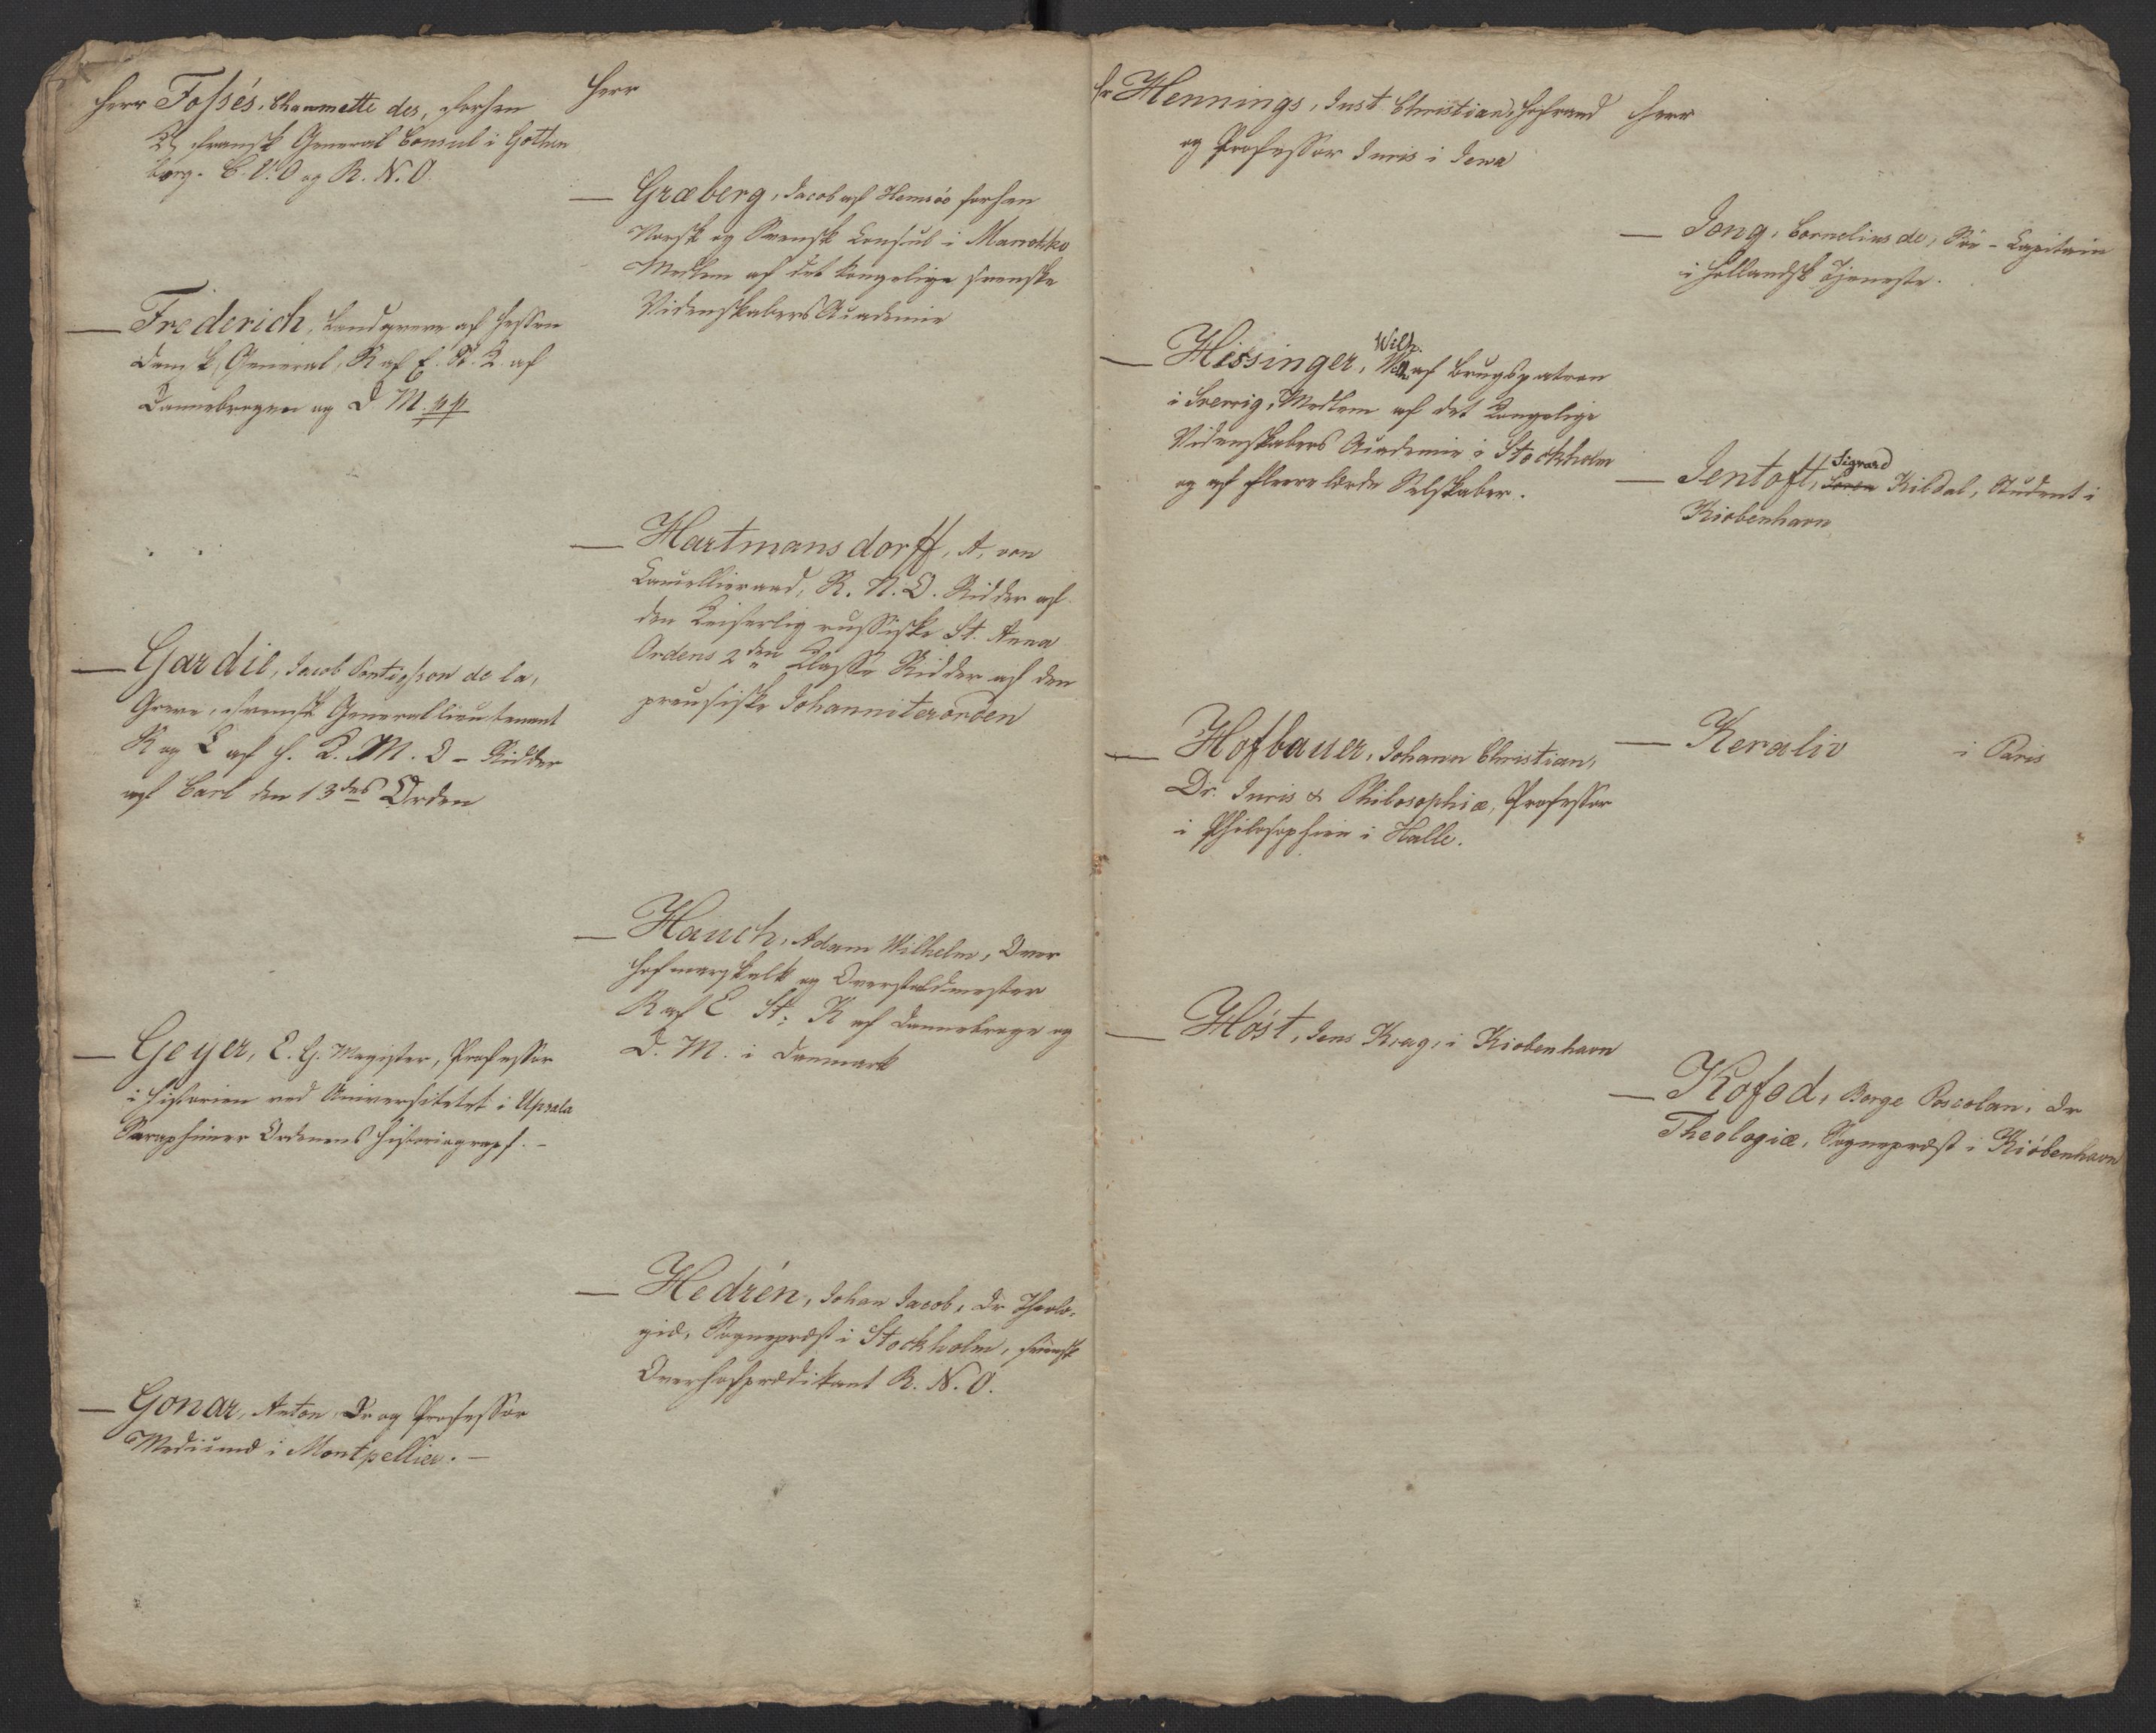 Herr Fossés, Chaumette des, forhen
fransk General Consul i Gothen
borg. C. V. O og R. N. O.
— Frederich, Landgreve af Hessen
Dansk General, R af E. St. K. af
Dannebrogen og D. M. pp
— Gardie, Jacob Pontusson de la,
Greve, svensk Generallieutenant
R og C af H. K. M. O – Ridder
af Carl den 13des Orden
— Geyer, E. G. Magister, Professor
i Historien ved Universitetet i Upsala
Seraphimer Ordenens Historiograph. –
— Gonar, Anton, Dr og Professor
Medicinæ i Montpellier. —
Herr
— Græberg, Jacob af Hemsöe forhen
Norsk og Svensk Consul i Marokko
Medlem af det kongelige svenske
Videnskabers Academie
— Hartmansdorff, A. von
Cancellieraad, R. N. O. Ridder af
den Keiserlig russiske St. Anna
Ordens 2den Classe Ridder af den
preusiske Johanniterorden
— Hauch, Adam Wilhelm, Over
Hofmarskalk og Overstaldmester
R af E. St: K af Dannebroge og
D. M. i Danmark
— Hedrén, Johan Jacob, Dr Theolo-
giæ, Sognepræst i Stockholm, svensk
Overhofprædikant R. N. O.
Hr Hennings, Just. Christian, Hofraad
og Professor Juris i Jena
— Hissinger, Wilh. af Brugspatron
i Sverrig, Medlem af det Kongelige
Videnskabers Academie i Stockholm
og af flere lærde Selskaber.
— Hofbauer, Johann Christian,
Dr. Juris & Philosophiæ, Professor
i Philosophien i Halle.
— Höst, Jens Krag, i Kiobenhavn
Herr
— Jong, Cornelius de, Söe-Capitain
i hollandsk Tjeneste.
— Jentoft, Sigvard Kildal, Student i
Kiobenhavn
— Keraliv i Paris
— Kofod, Borge Poscolan, Dr
Theologiæ, Sognepræst i Kiöbenhavn